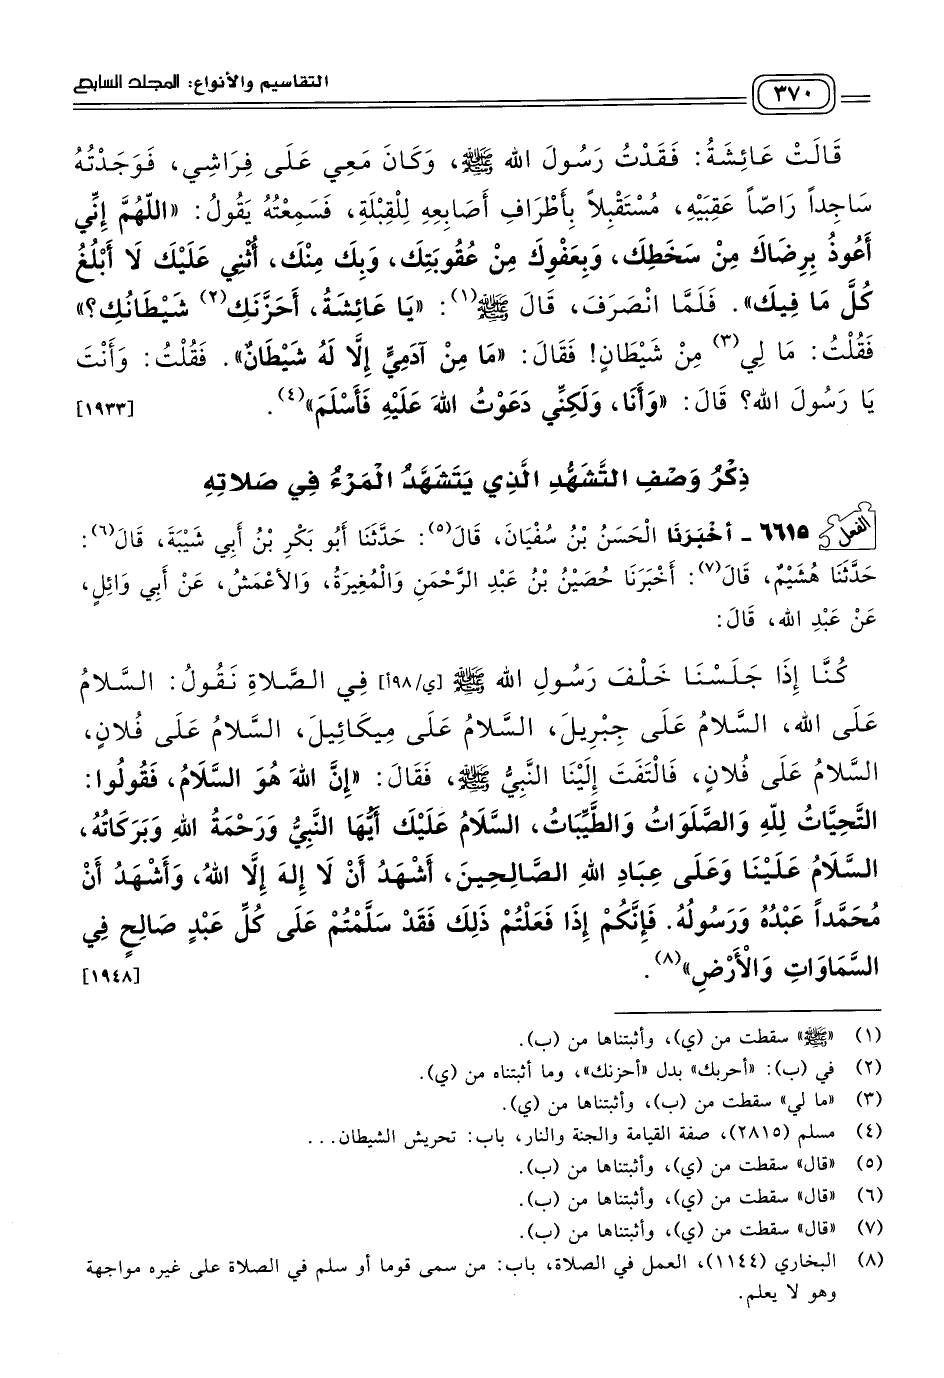 ٣٧٠
التقاسيم والأنواع: المجلد السابع
قَالَتْ عَائِشَةُ: فَقَدْتُ رَسُولَ الله ﷺ، وَكَانَ مَعِي عَلَى فِرَاشِي، فَوَجَدْتُهُ
سَاجِداً رَاصّاً عَقِبَيْهِ، مُسْتَقْبِلاً بِأَطْرَافِ أَصَابِعِهِ لِلْقِبْلَةِ، فَسَمِعْتُهُ يَقُولُ: «اللّهُمَّ إِنِّي
أَعُوذُ بِرِضَاكَ مِنْ سَخَطِكَ، وَبِعَفْوِكَ مِنْ عُقُوبَتِكَ، وَبِكَ مِنْكَ، أُثْنِي عَلَيْكَ لَا أَبْلُغُ
كُلَّ مَا فِيكَ». فَلَمَّا انْصَرَفَ، قَالَ ﷺ(١): «يَا عَائِشَةُ، أَحَزَّنَكِ(٢) شَيْطَانُكِ؟»
فَقُلْتُ: مَا لِي(٣) مِنْ شَيْطَانٍ! فَقَالَ: «مَا مِنْ آدَمِيٍّ إِلَّا لَهُ شَيْطَانٌ». فَقُلْتُ: وَأَنْتَ
يَا رَسُولَ الله؟ قَالَ: «وَأَنَا، وَلَكِنِّي دَعَوْتُ اللهَ عَلَيْهِ فَأَسْلَمَ»(٤). [١٩٣٣]
ذِكْرُ وَصْفِ التَّشَهُّدِ الَّذِي يَتَشَهَّدُ الْمَرْءُ فِي صَلَاتِهِ
الفعل ٦٦١٥ - أَخْبَرَنَا الْحَسَنُ بْنُ سُفْيَانَ، قَالَ(٥): حَدَّثَنَا أَبُو بَكْرِ بْنُ أَبِي شَيْبَةَ، قَالَ(٦):
حَدَّثَنَا هُشَيْمٌ، قَالَ(٧): أَخْبَرَنَا حُصَيْنُ بْنُ عَبْدِ الرَّحْمَنِ وَالْمُغِيرَةُ، وَالأَعْمَشُ، عَنْ أَبِي وَائِلٍ،
عَنْ عَبْدِ الله، قَالَ:
كُنَّا إِذَا جَلَسْنَا خَلْفَ رَسُولِ الله ﷺ [ي/٩٨أ] فِي الصَّلَاةِ نَقُولُ: السَّلَامُ
عَلَى الله، السَّلَامُ عَلَى جِبْرِيلَ، السَّلَامُ عَلَى مِيكَائِيلَ، السَّلَامُ عَلَى فُلَانٍ،
السَّلَامُ عَلَى فُلَانٍ، فَالْتَفَتَ إِلَيْنَا النَّبِيُّ ﷺ، فَقَالَ: «إِنَّ اللهَ هُوَ السَّلَامُ، فَقُولُوا:
التَّحِيَّاتُ لِلّهِ وَالصَّلَوَاتُ وَالطَّيِّبَاتُ، السَّلَامُ عَلَيْكَ أَيُّهَا النَّبِيُّ وَرَحْمَةُ اللهِ وَبَرَكَاتُهُ،
السَّلَامُ عَلَيْنَا وَعَلَى عِبَادِ اللهِ الصَّالِحِينَ، أَشْهَدُ أَنْ لَا إِلهَ إِلَّا اللهُ، وَأَشْهَدُ أَنْ
مُحَمَّداً عَبْدُهُ وَرَسُولُهُ. فَإِنَّكُمْ إِذَا فَعَلْتُمْ ذَلِكَ فَقَدْ سَلَّمْتُمْ عَلَى كُلِّ عَبْدٍ صَالِحٍ فِي
السَّمَاوَاتِ وَالْأَرْضِ»(٨). [١٩٤٨]
(١) «ﷺ» سقطت من (ي)، وأثبتناها من (ب).
(٢) في (ب): «أحربك» بدل «أحزنك»، وما أثبتناه من (ي).
(٣) «ما لي» سقطت من (ب)، وأثبتناها من (ي).
(٤) مسلم (٢٨١٥)، صفة القيامة والجنة والنار، باب: تحريش الشيطان...
(٥) «قال» سقطت من (ي)، وأثبتناها من (ب).
(٦) «قال» سقطت من (ي)، وأثبتناها من (ب).
(٧) «قال» سقطت من (ي)، وأثبتناها من (ب).
(٨) البخاري (١١٤٤)، العمل في الصلاة، باب: من سمى قوما أو سلم في الصلاة على غيره مواجهة
وهو لا يعلم.